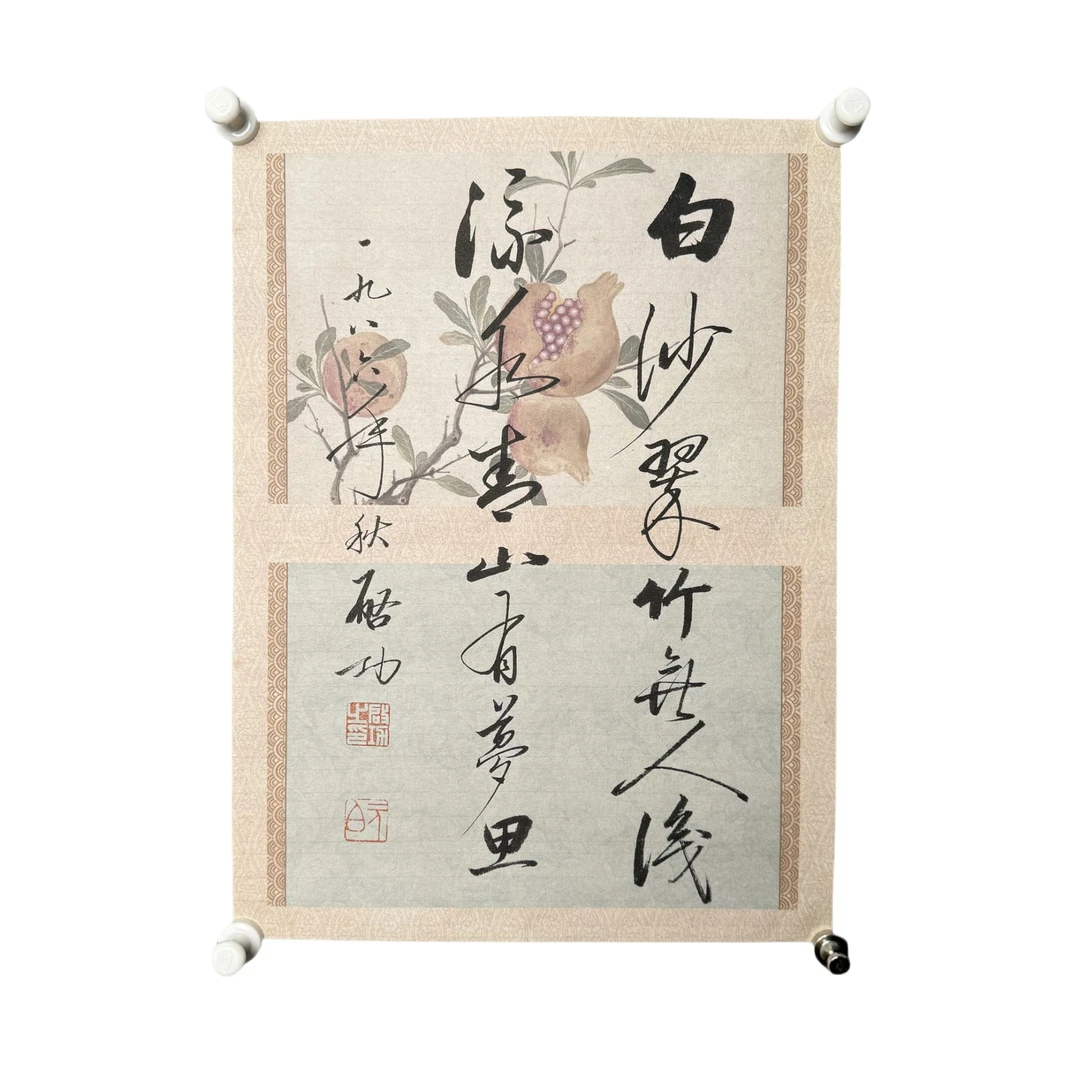 白沙翠竹無人淺
流水青山有夢里
一九八六年秋啓功
啟功之印
元白